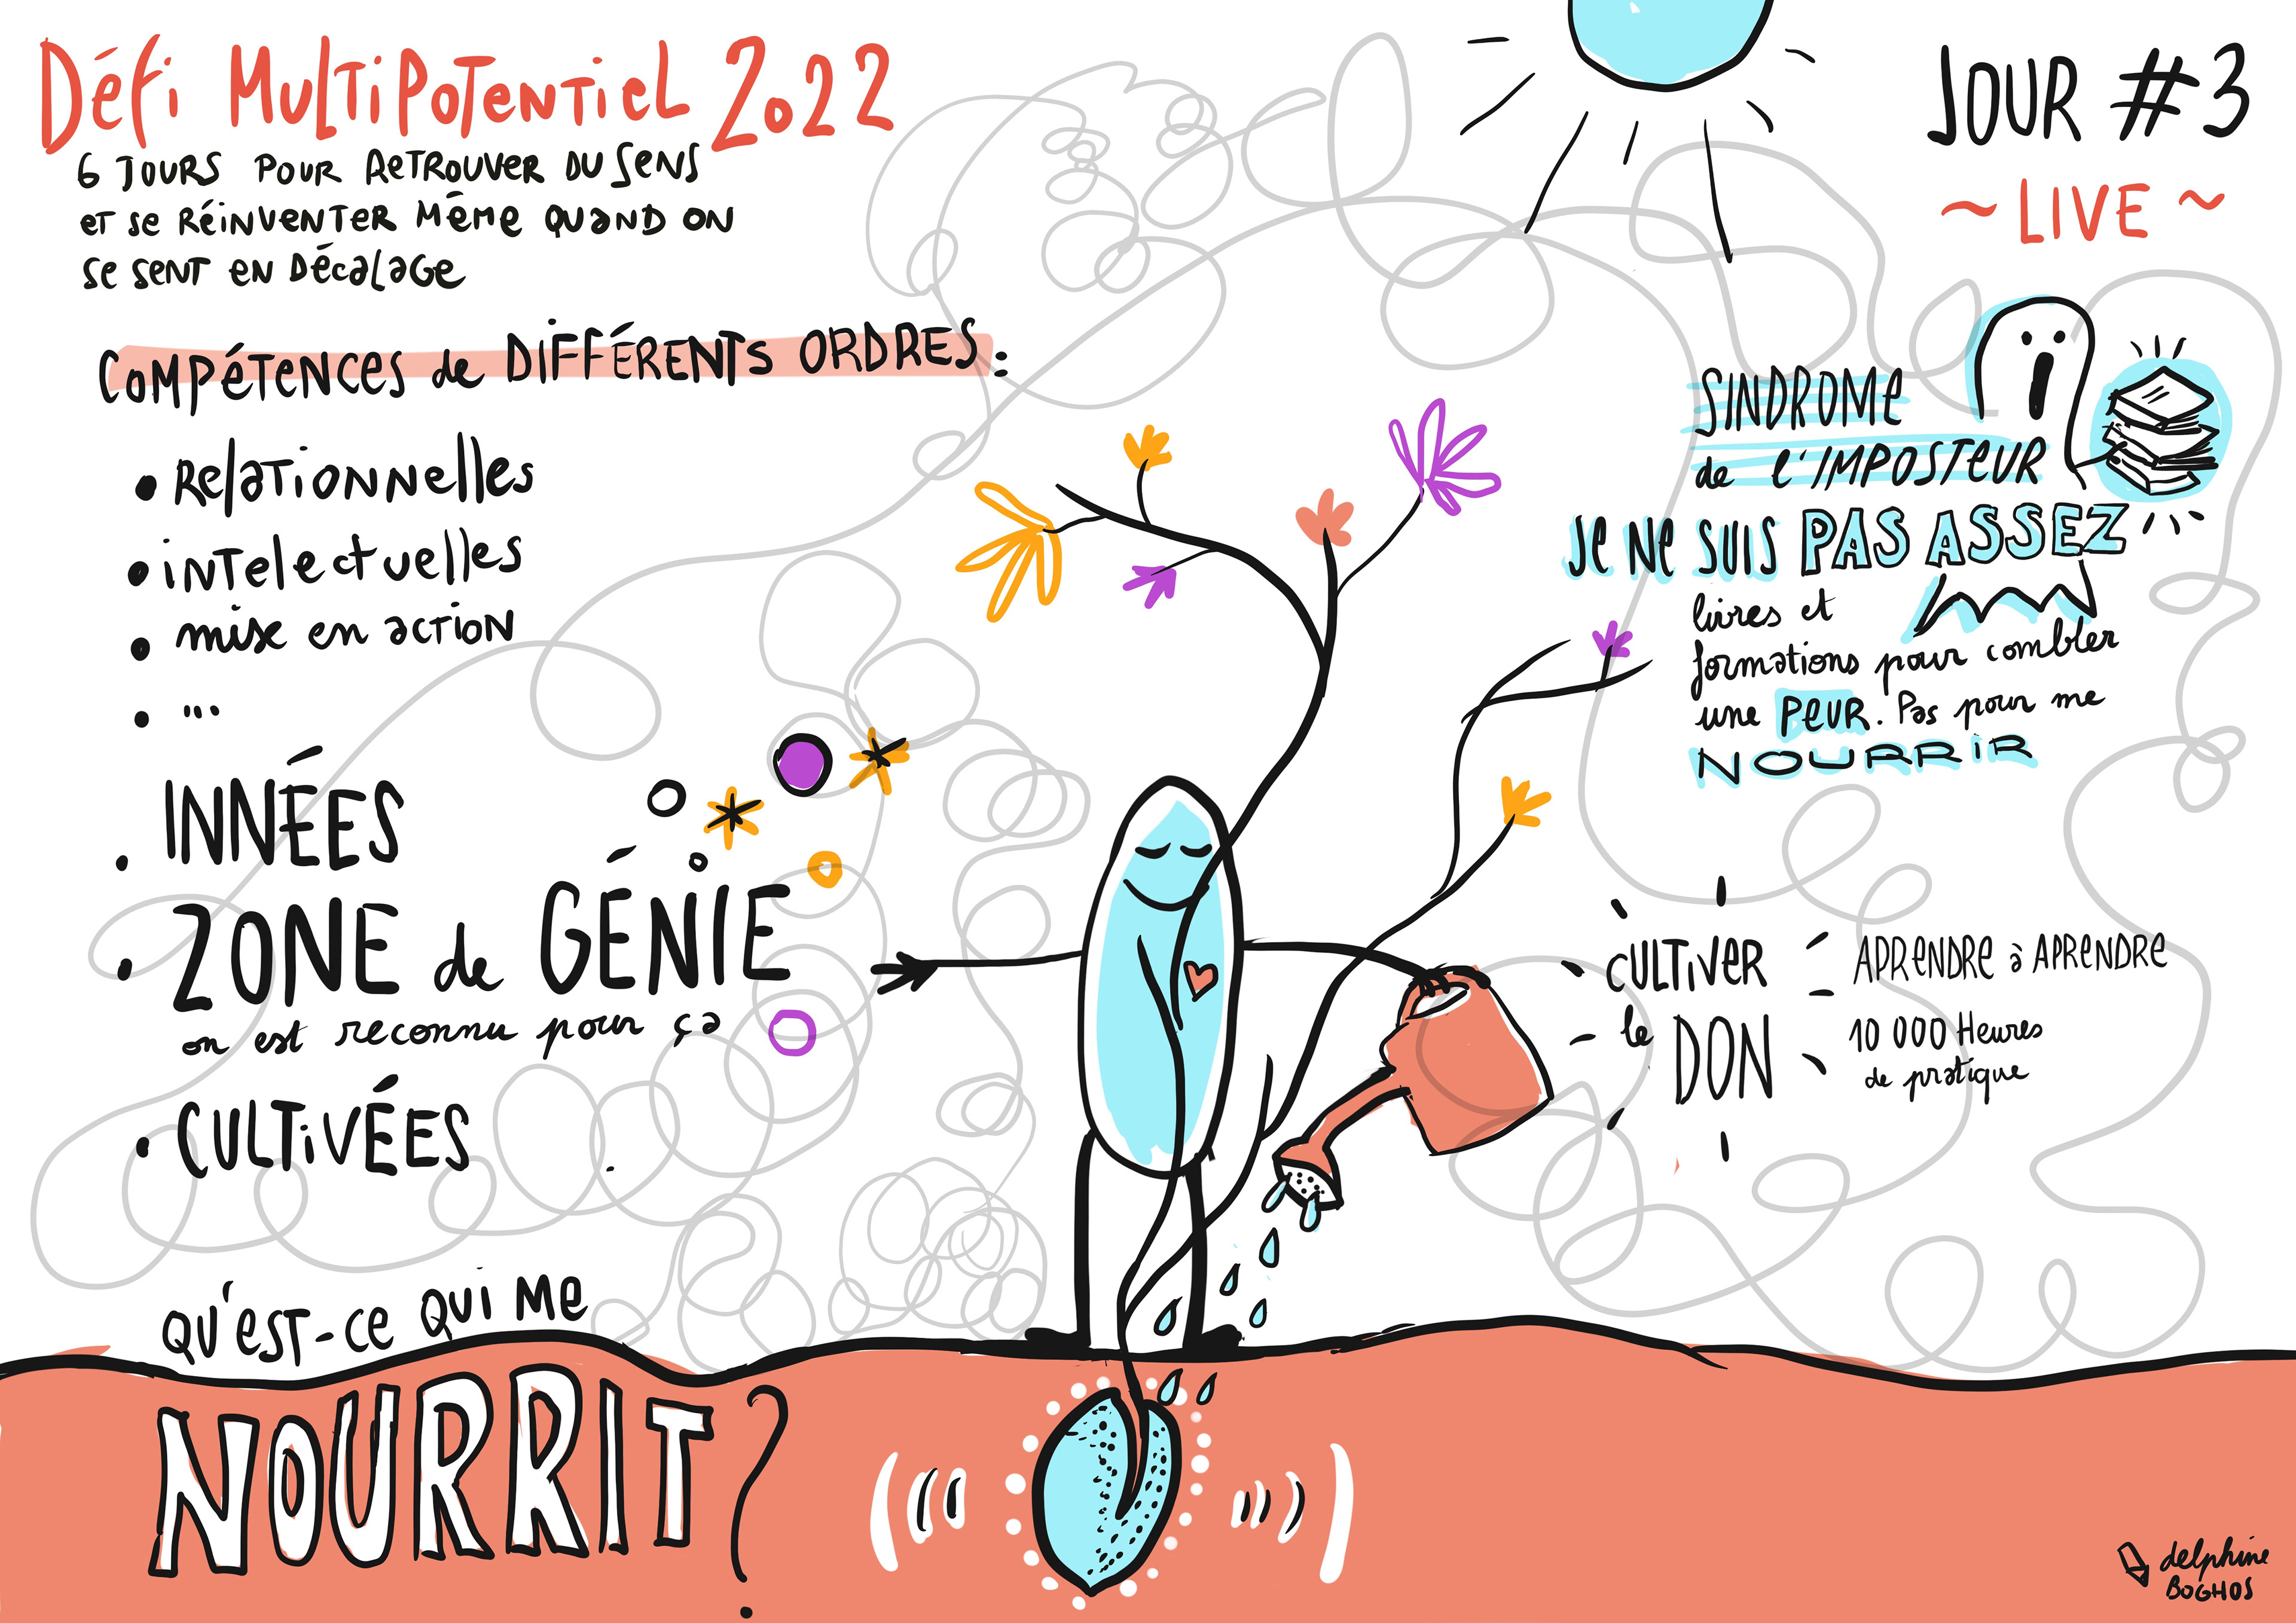 Défi Multipotentiel 2022
6 jours pour retrouver du sens
et se réinventer même quand on
se sent en décalage
Compétences de DIFFÉRENTS ORDRES :
• Relationnelles
• intelectuelles
• mise en action
• ...
• INNÉES
• ZONE de GÉNIE
on est reconnu pour ça
• CULTIVÉES
QU'EST-CE QUI ME
NOURRIT ?
JOUR #3
~ LIVE ~
SINDROME
de l'IMPOSTEUR
JE NE SUIS PAS ASSEZ
livres et
formations pour combler
une PEUR. Pas pour me
NOURRIR
CULTIVER
le DON
APRENDRE à APRENDRE
10 000 Heures
de pratique
delphine
BOGHOS